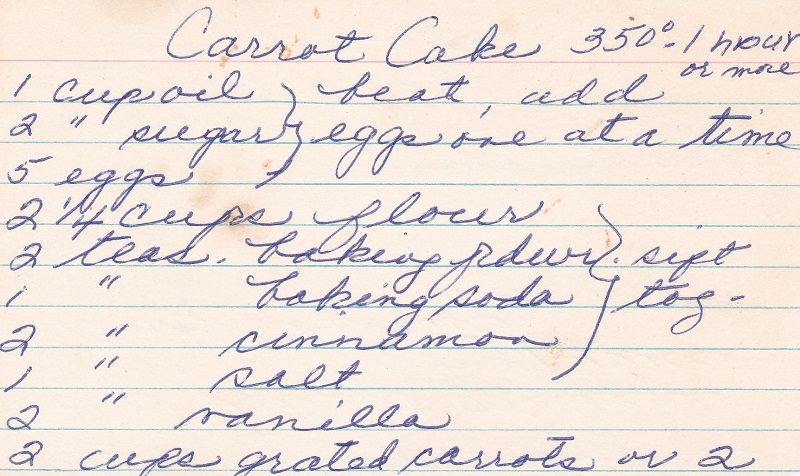 Carrot Cake 350° - 1 hour
or more
1 cup oil } beat, add
2 " sugar } eggs one at a time
5 eggs
2 1/4 cups flour
2 teas. baking pdwr. } sift
1 " baking soda } tog-
2 " cinnamon
1 " salt
2 " vanilla
2 cups grated carrots or 2